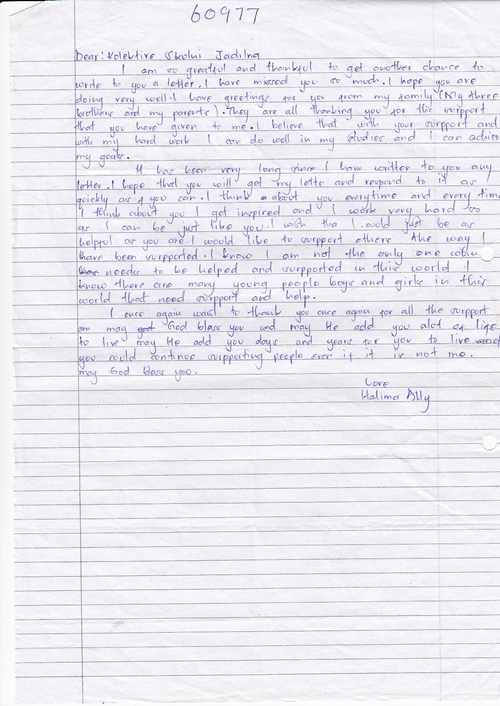 60977
Dear: Kolektive Skolni Jadilna
I am so greatful and thankful to get another chance to
write to you a letter. I have missed you so much. I hope you are
doing very well. I have greetings for you from my family (My three
brothers and my parents). They are all thanking you for the support
that you have given to me. I believe that with your support and
with my hard work I can do well in my studies and I can achieve
my goals.
It has been very long since I have written to you any
letter. I hope that you will get my lette and respond to it as
quickly as you can. I think about you everytime and every time
I think about you I get inspired and I work very hard so
as I can be just like you. I wish tha I could just be as
helpful as you are. I would like to support others the way I
have been supported. I know I am not the only one who
needs to be helped and supported in this world I
know there are many young people boys and girls in this
world that need support and help.
I once again want to thank you once again for all the support
am may God bless you and may He add you alot of life
to live may He add you days and years for you to live and
you could continue supporting people even if it is not me.
may God bless you.
Love
Halima Ally